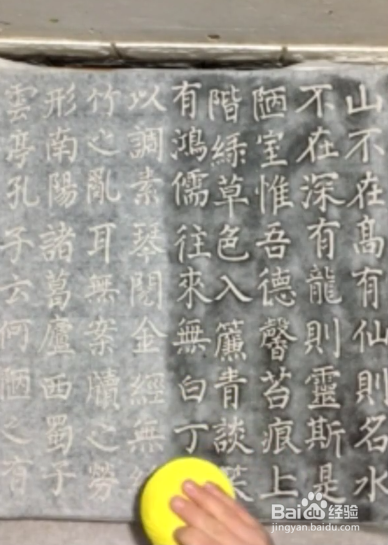 山不在高有仙則名水
不在深有龍則靈斯是
陋室惟吾德馨苔痕上
階綠草色入簾青談笑
有鴻儒往來無白丁
以調素琴閱金經無
竹之亂耳無案牘之勞
形南陽諸葛廬西蜀子
雲亭孔子云何陋之有
Baidu 百度 经验
jingyan.baidu.com